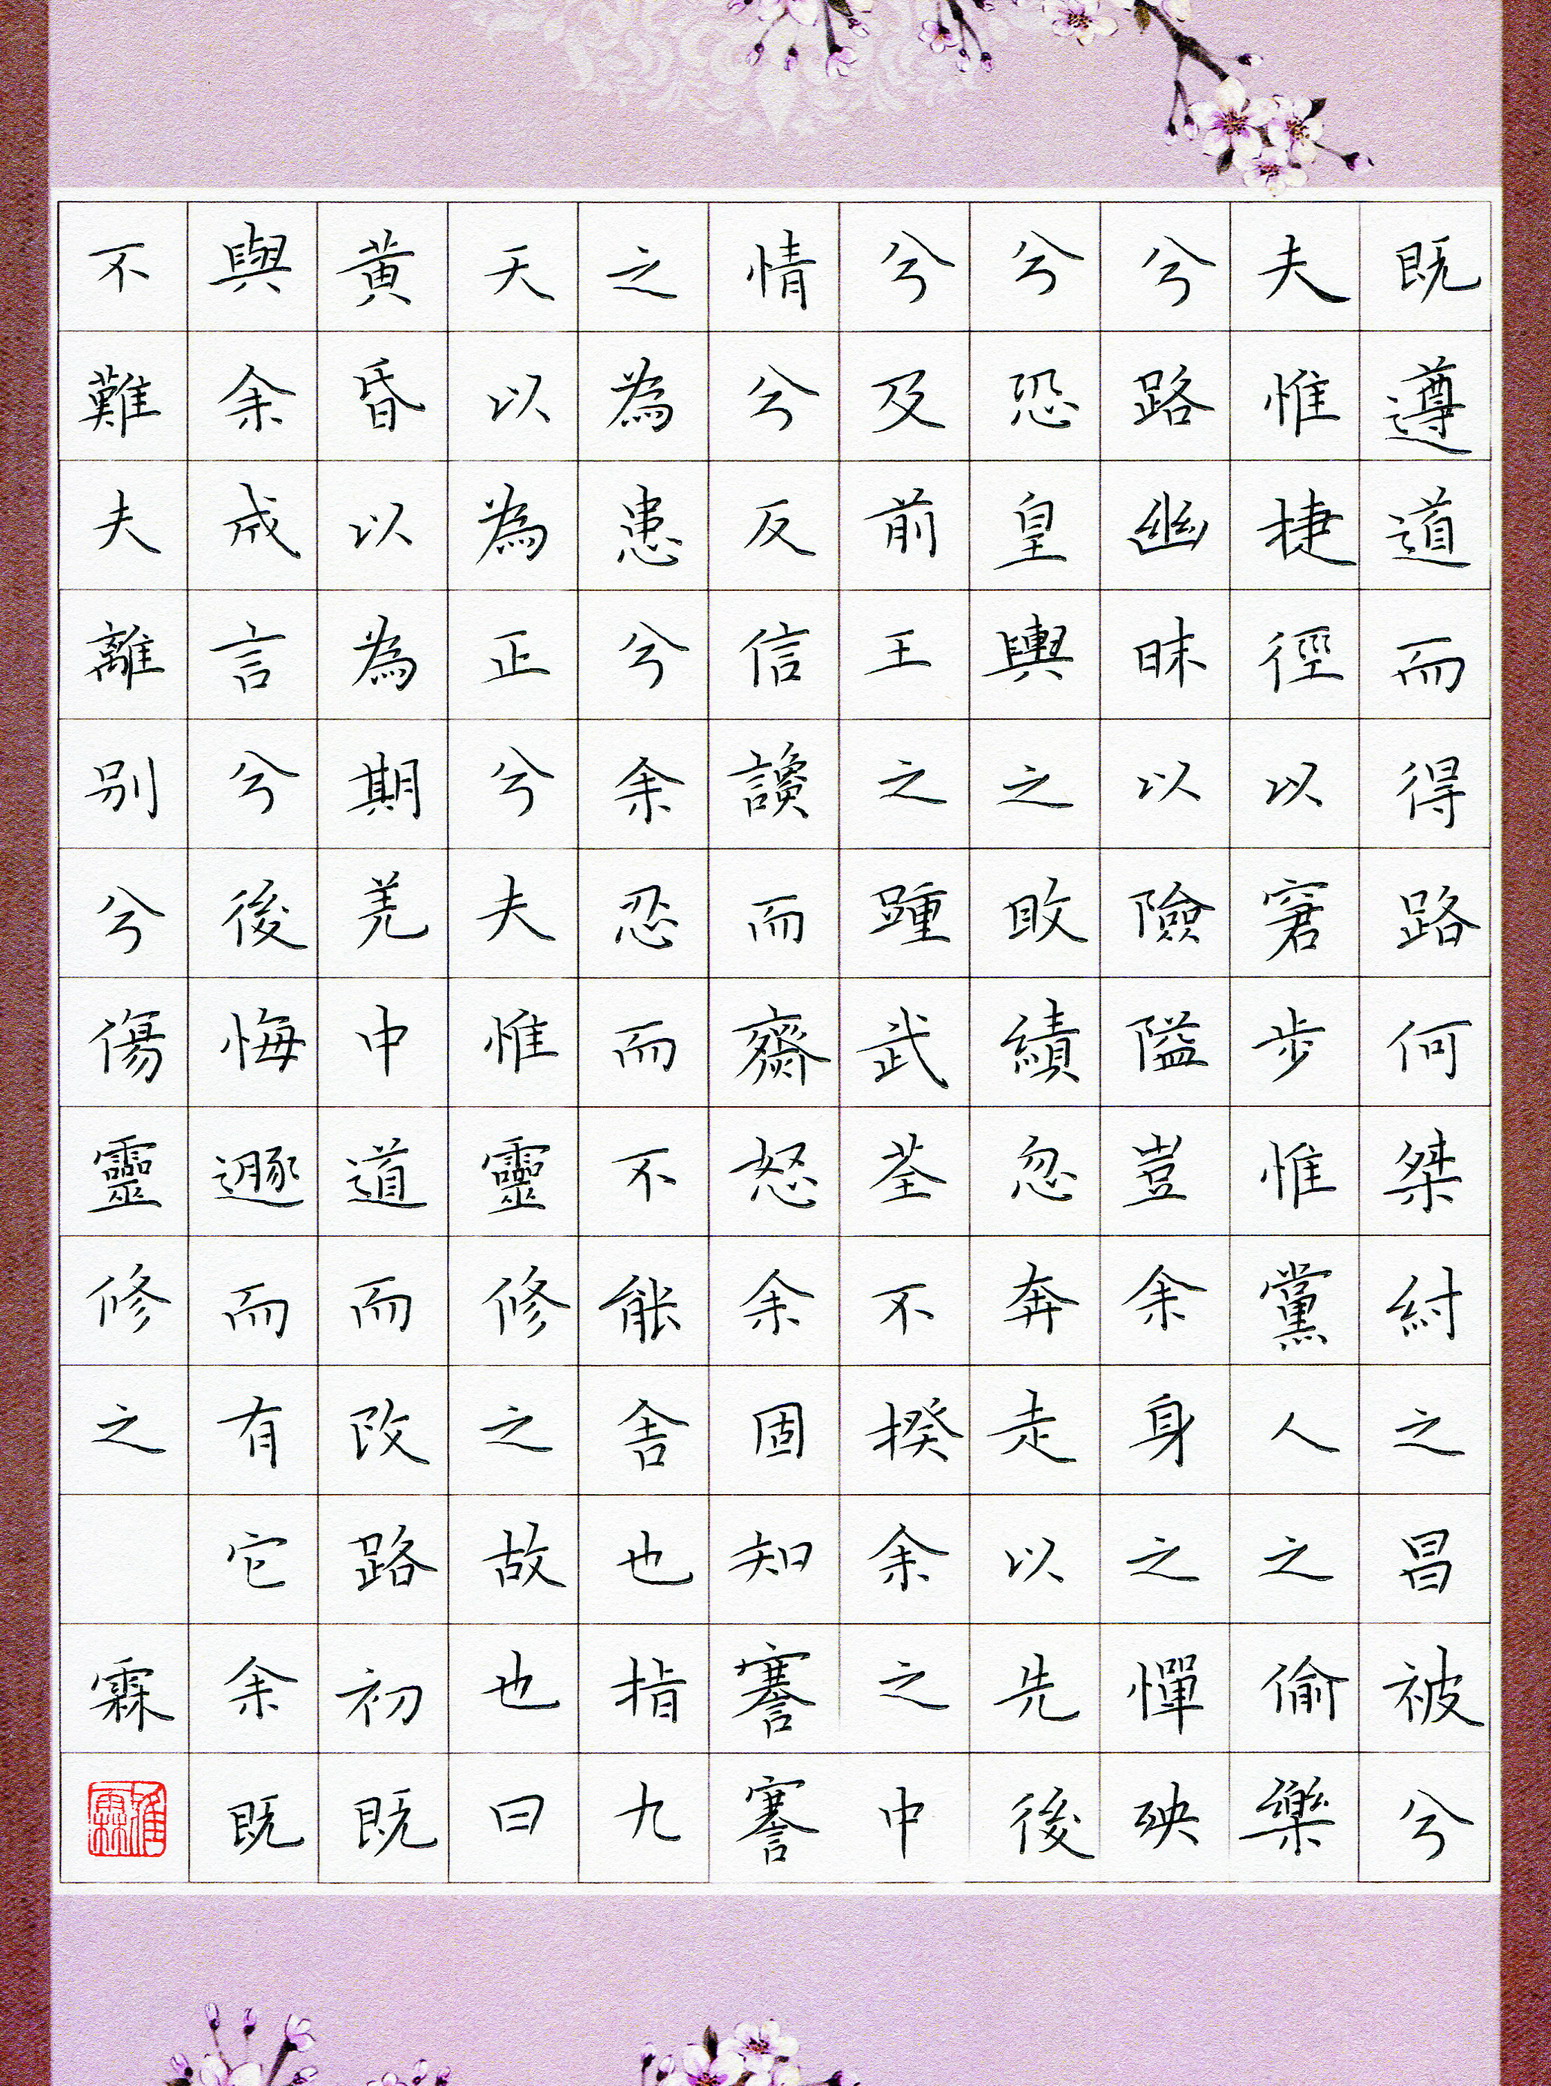 既遵道而得路何桀紂之昌被兮
夫惟捷徑以窘步惟黨人之偷樂
兮路幽昧以險隘豈余身之憚殃
兮恐皇輿之敗績忽奔走以先後
兮及前王之踵武荃不揆余之中
情兮反信讒而齋怒余固知謇謇
之為患兮余忍而不能舍也指九
天以為正兮夫惟靈修之故也曰
黃昏以為期羌中道而改路初既
與余成言兮後悔遯而有它余既
不難夫離別兮傷靈修之
霖
雅霖